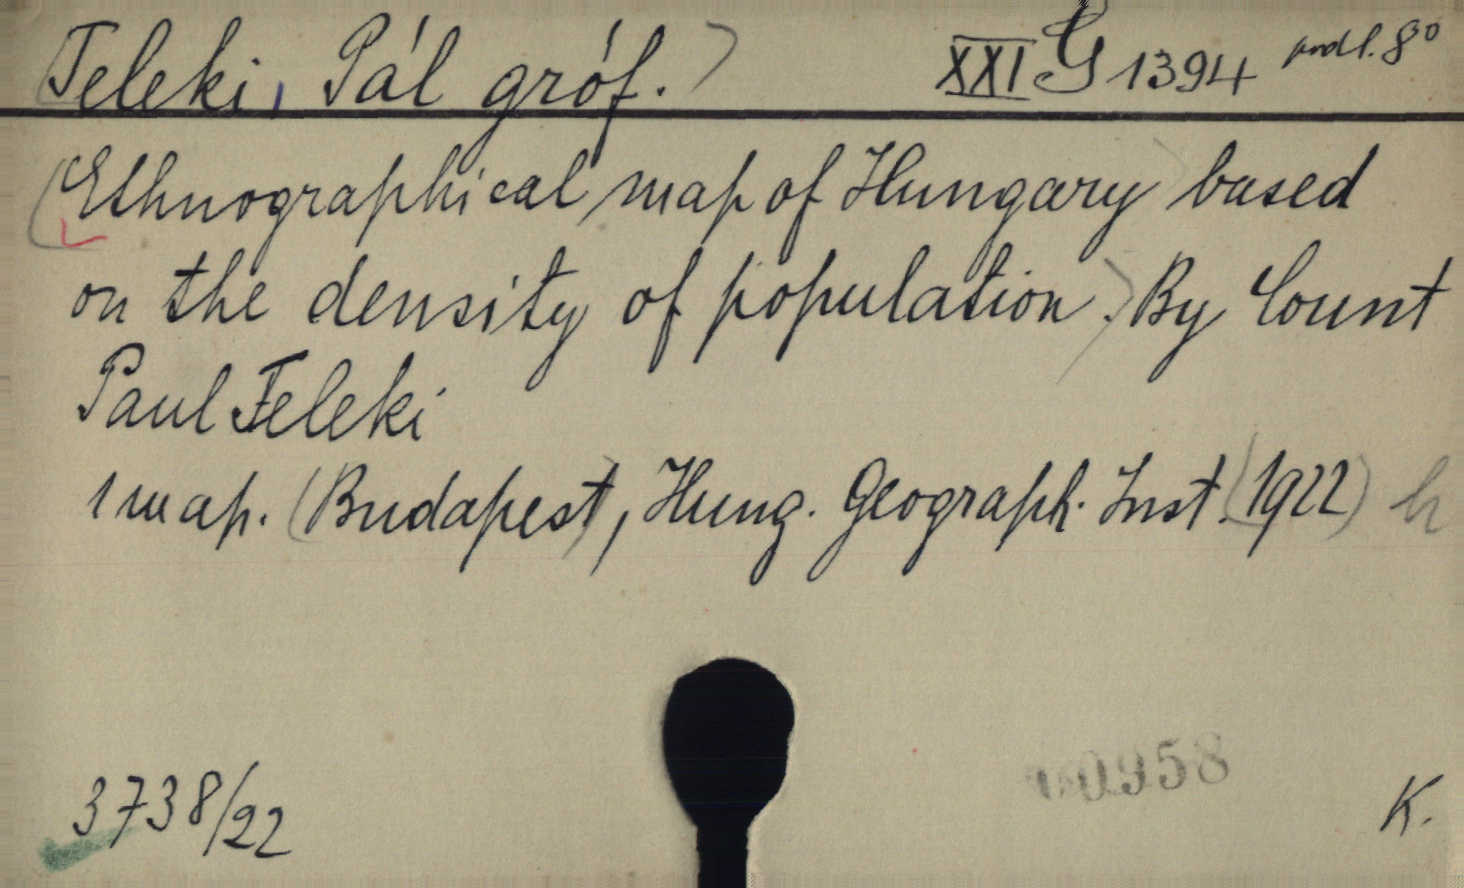 (Teleki, Pál gróf.) XXI G 1394 podl. 8°
(Ethnographical map of Hungary) based
on the density of population.) By Count
Paul Teleki
1 map. (Budapest), Hung. Geograph. Inst. (1922) h
3738/22
0958
K.